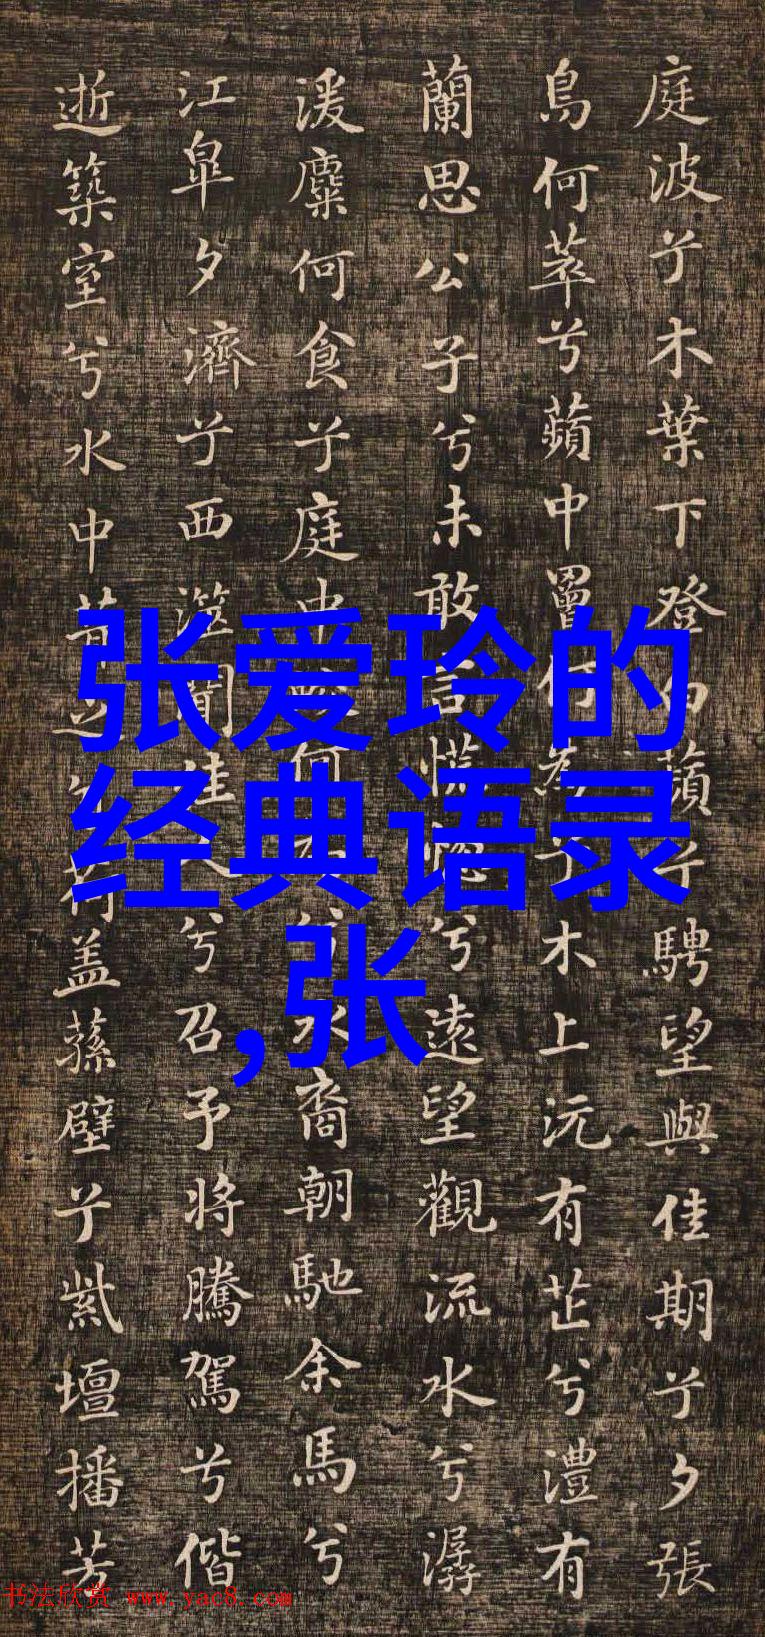 庭波兮木葉下登白蘋兮騁望與佳期兮夕張
鳥何萃兮蘋中罾何為兮木上沅有芷兮澧有
蘭思公子兮未敢言慌惚兮遠望觀流水兮潺
湲麋何食兮庭中何兮水裔朝馳余馬兮
江皐夕濟兮西澨聞佳人兮召予将騰駕兮偕
逝築室兮水中葺之兮荷盖蓀壁兮紫壇播芳
张爱玲的
经典语录
,张
书法欣赏 www.yac8.com